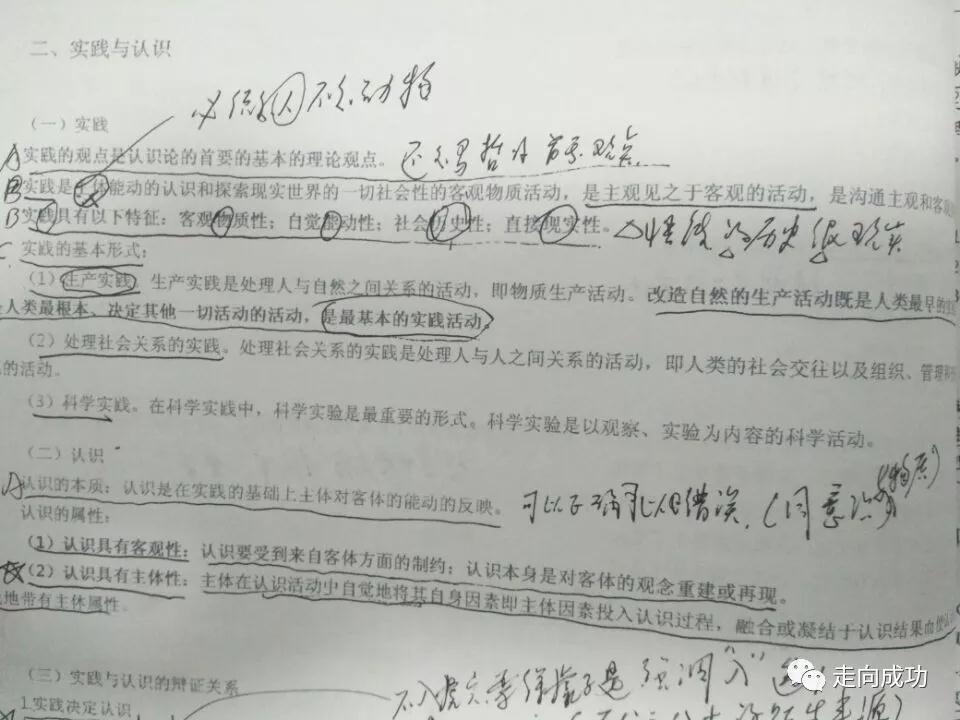 二、实践与认识
必须是人不是动物
（一）实践
A实践的观点是认识论的首要的基本的理论观点。还不是哲学首要观点
B实践是主体能动的认识和探索现实世界的一切社会性的客观物质活动，是主观见之于客观的活动，是沟通主观和客观
B实践具有以下特征：客观物质性；自觉能动性；社会历史性；直接现实性。
C 实践的基本形式：
（1）生产实践。生产实践是处理人与自然之间关系的活动，即物质生产活动。改造自然的生产活动既是人类最早的
人类最根本、决定其他一切活动的活动，是最基本的实践活动。
（2）处理社会关系的实践。处理社会关系的实践是处理人与人之间关系的活动，即人类的社会交往以及组织、管理和
的活动。
（3）科学实践。在科学实践中，科学实验是最重要的形式。科学实验是以观察、实验为内容的科学活动。
（二）认识
A认识的本质：认识是在实践的基础上主体对客体的能动的反映。可以正确可以错误，（同意识）（物质）
认识的属性：
（1）认识具有客观性：认识要受到来自客体方面的制约；认识本身是对客体的观念重建或再现。
（2）认识具有主体性：主体在认识活动中自觉地将其自身因素即主体因素投入认识过程，融合或凝结于认识结果而使认
地带有主体属性。
（三）实践与认识的辩证关系
不入虎穴焉得虎子是强调"入"
1.实践决定认识
走向成功